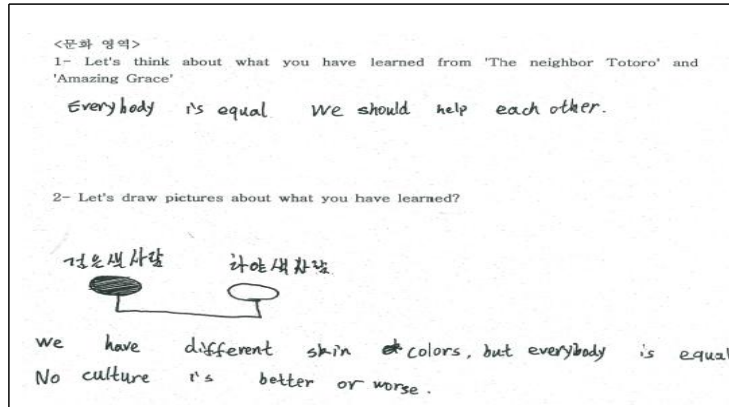 <문화 영역>
1- Let's think about what you have learned from 'The neighbor Totoro' and
'Amazing Grace'
Everybody is equal We should help each other.
2- Let's draw pictures about what you have learned?
검은색사람 하야색사람
We have different skin colors, but everybody is equal
No culture is better or worse.